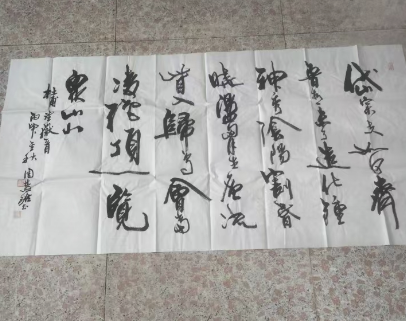 岱宗夫如何齊
魯青未了造化鍾
神秀陰陽割昏
曉盪胸生層云决
眥入歸鳥會當
凌絕頂一覽
衆山小
杜甫望嶽
丙申年秋